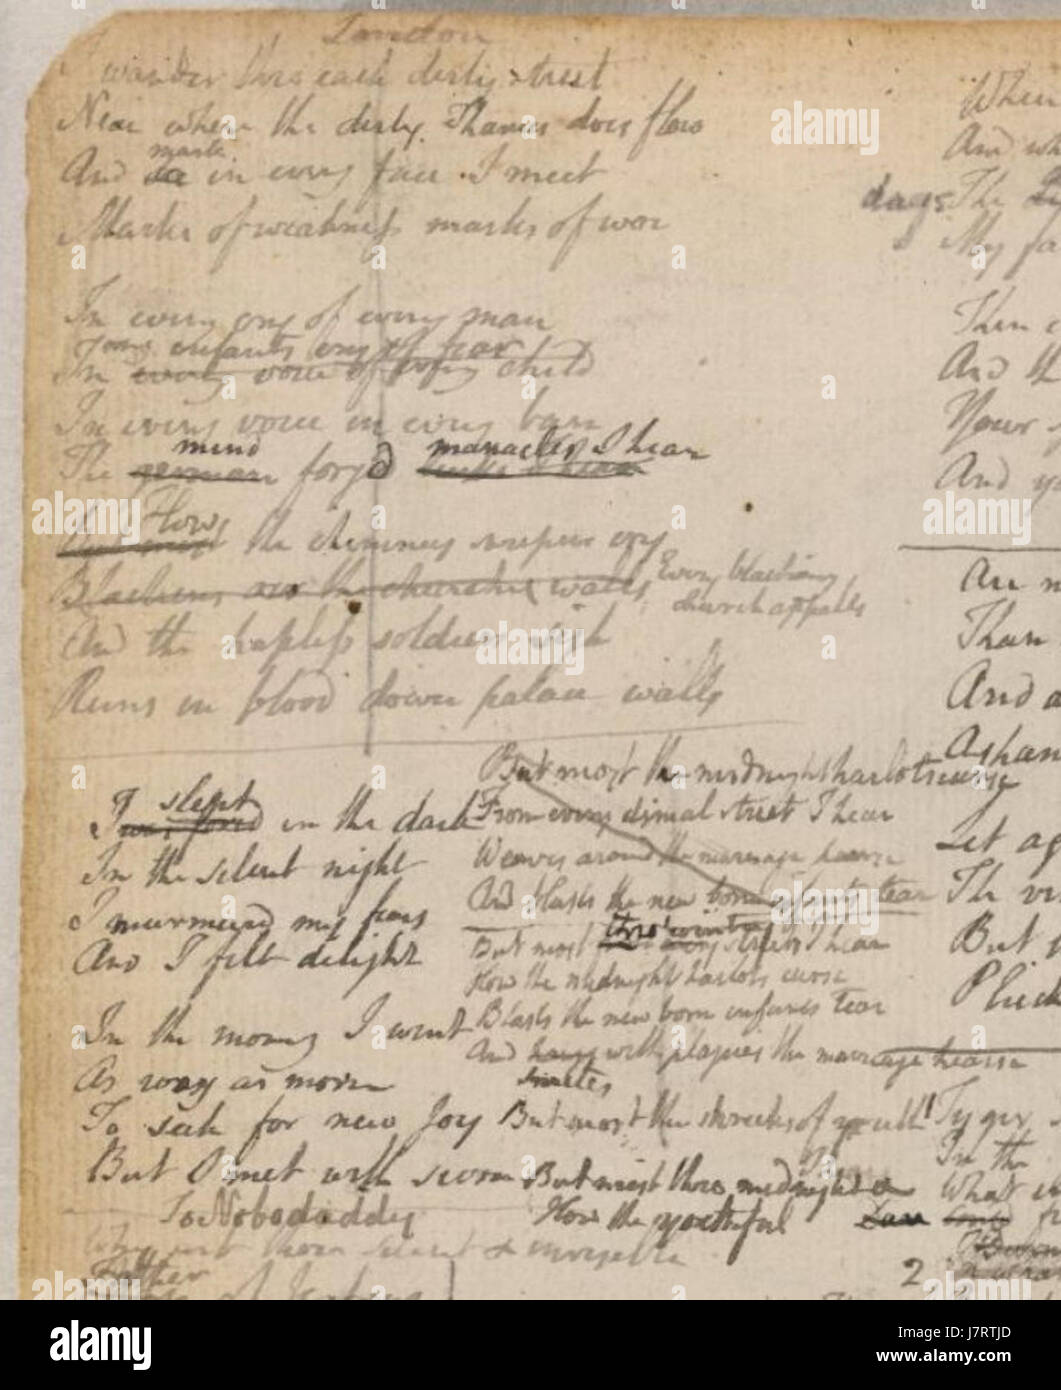 London
I wander thro each dirty street
Near where the dirty Thames does flow
mark
And see in every face I meet
Marks of weakness marks of woe
In every cry of every man
In every infants cry of fear
In every voice of every child
In every voice in every ban
mind manacles I hear
The german forgd links I hear
How
But most the chimney sweepers cry
Blackens oer the churches walls
Every blackning
church appalls
And the hapless soldiers sigh
Runs in blood down palace walls
But most the midnight harlots curse
From every dismal street I hear
Weaves around the marriage hearse
And blasts the new born infants tear
thro wintry
But most from every streets I hear
How the midnight harlots curse
Blasts the new born infants tear
And hangs with plagues the marriage hearse
smites
But most the shrieks of youth
But most thro midnight &
How the youthful
slept
I was fond in the dark
In the silent night
I murmured my fears
And I felt delight
In the morng I went
As rosy as morn
To seek for new Joy
But O met with scorn
To Nobodaddy
Why art thou silent & invisible
Father
days
When
And wh
The
My fa
Then
And th
Your
And yo
An
Than
And a
Asham
Let ag
The vi
But
Pluck
Tyger
In the
What
2
alamy
Image ID: J7RTJD
www.alamy.com